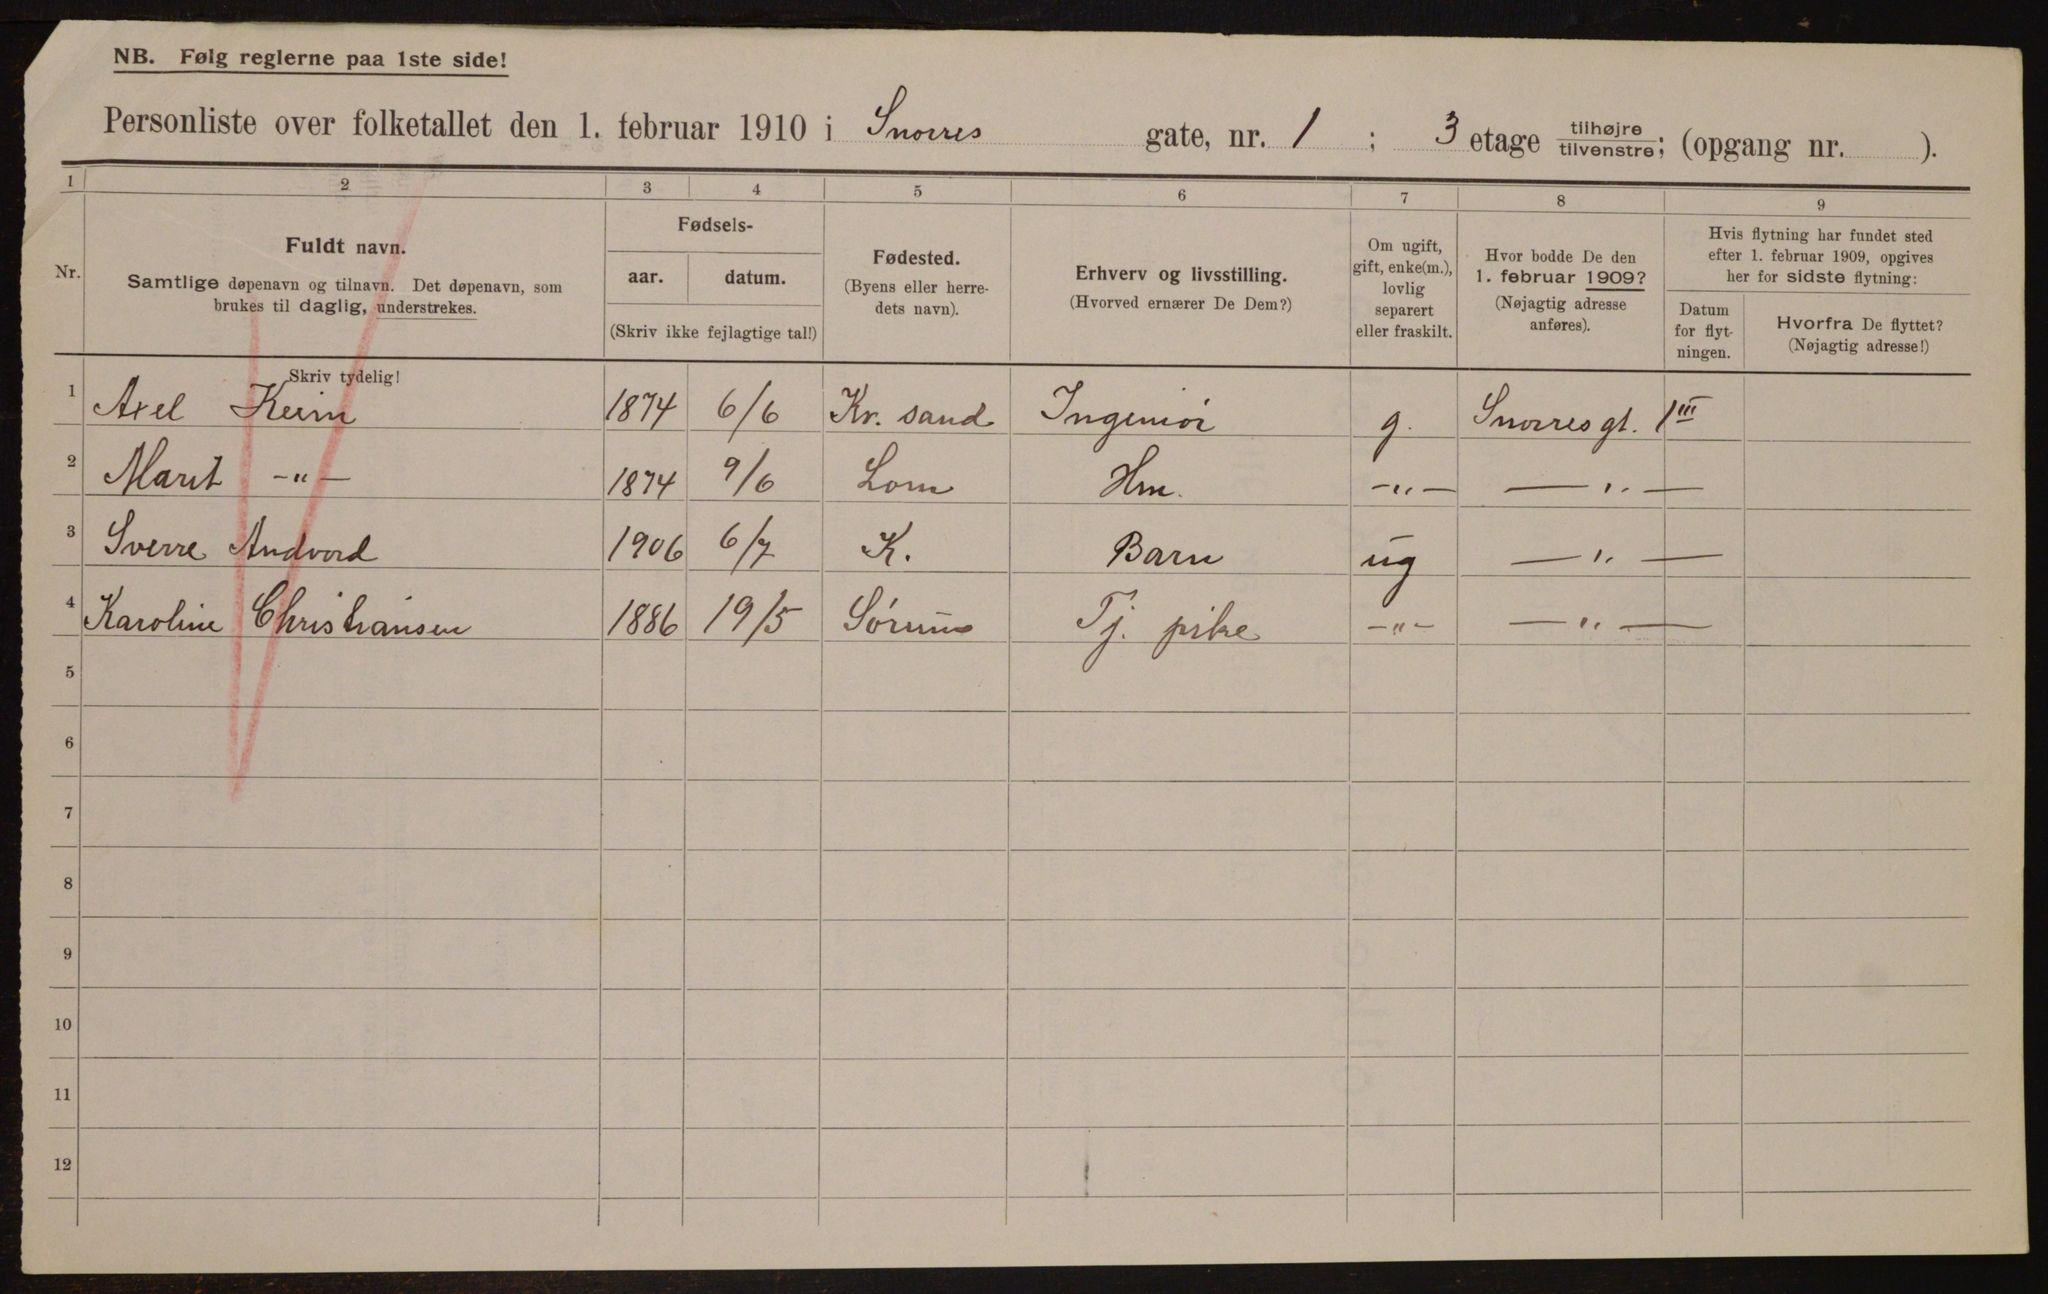 NB. Følg reglerne paa 1ste side!
Personliste over folketallet den 1. februar 1910 i Snorres gate, nr. 1 ; 3 etage tilhøjre tilvenstre; (opgang nr. ).
1 2 3 4 5 6 7 8 9
Nr.
Fuldt navn.
Samtlige døpenavn og tilnavn. Det døpenavn, som
brukes til daglig, understrekes.
Skriv tydelig!
Fødsels-
aar. datum.
(Skriv ikke fejlagtige tal!)
Fødested.
(Byens eller herre-
dets navn).
Erhverv og livsstilling.
(Hvorved ernærer De Dem?)
Om ugift,
gift, enke(m.),
lovlig
separert
eller fraskilt.
Hvor bodde De den
1. februar 1909?
(Nøjagtig adresse
anføres).
Hvis flytning har fundet sted
efter 1. februar 1909, opgives
her for sidste flytning:
Datum
for flyt-
ningen.
Hvorfra De flyttet?
(Nøjagtig adresse!)
1 Axel 1874 6/6 Kr. sand Ingeniør g. Snorresgt. 1 III
2 Marit -"- 1874 9/6 Lom Hm. -"- -"-
3 Sverre Andvord 1906 6/7 K. Barn ug -"-
4 Karoline Christiansen 1886 19/5 Sørum Tj. pike -"- -"-
5
6
7
8
9
10
11
12